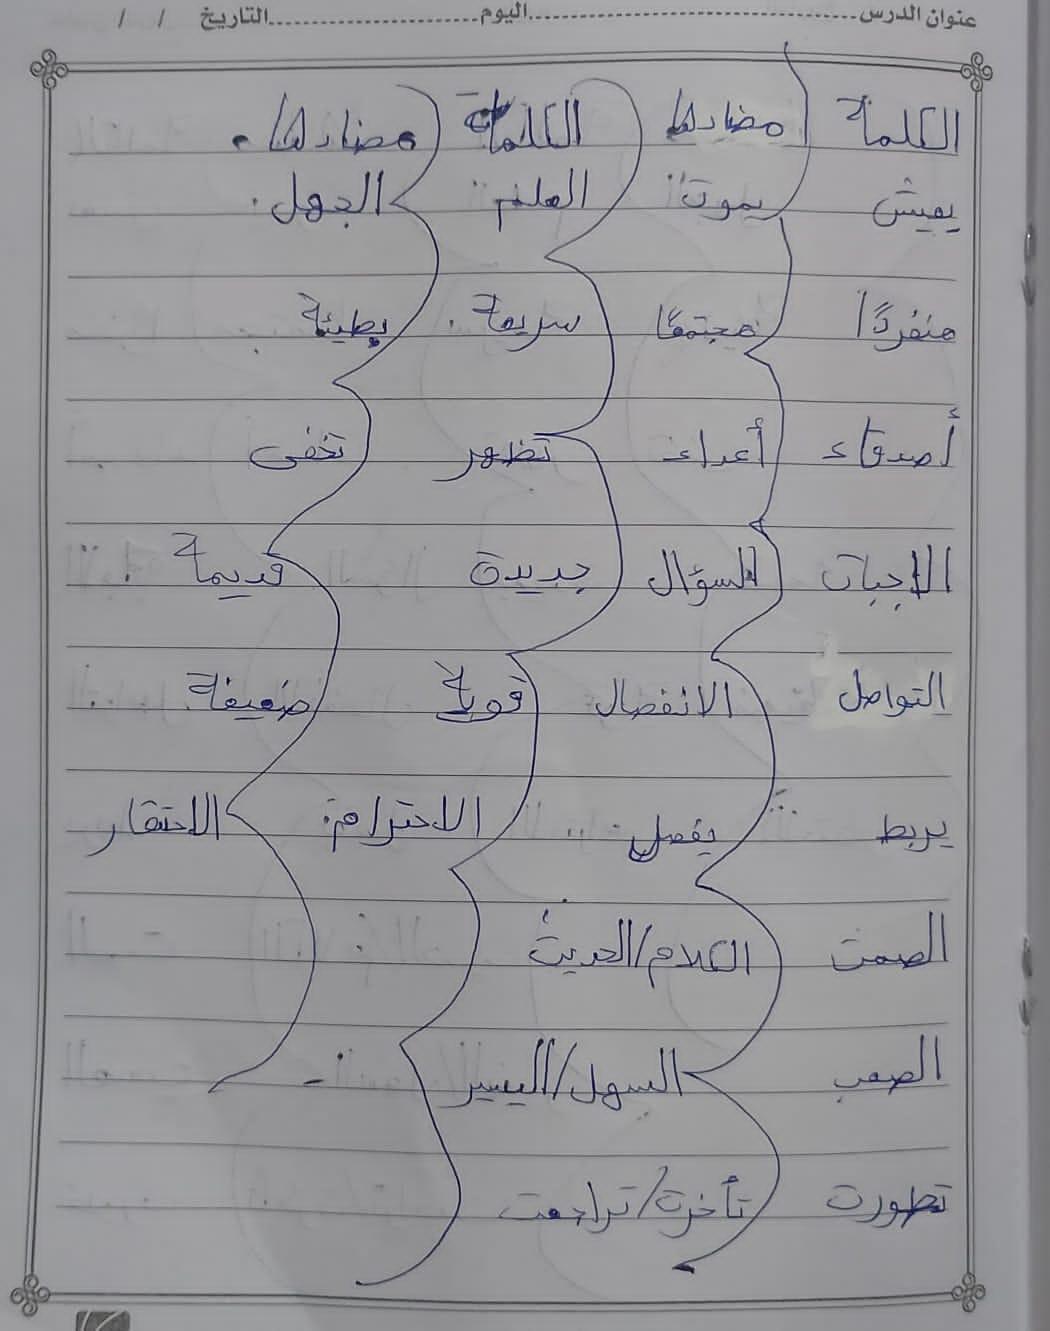 عنوان الدرس ........................ اليوم ........................ التاريخ / /
الكلمة مضادها الكلمة مضادها
يعيش يموت العلم الجهل
منفردًا مجتمعًا سريعة بطيئة
أصدقاء أعداء تظهر تخفى
الإجبات السؤال جديدة قديمة
التواصل الانفصال قوية ضعيفة
يربط يفصل الاحترام الاحتقار
الصمت الكلام/الحديث
الصعب السهل/اليسير
تطورت تأخرت/تراجعت